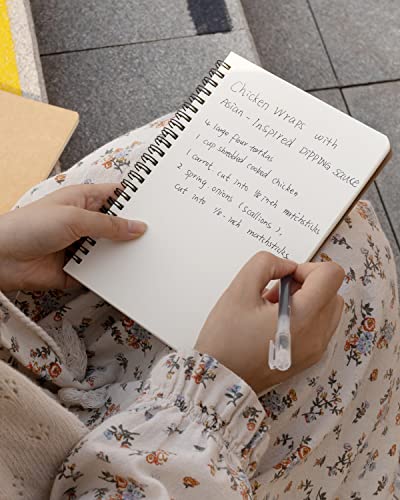 Chicken Wraps with
Asian - Inspired Dipping sauce
4 large flour tortillas
1 cup shredded cooked chicken
1 carrot cut into 1/8 inch matchsticks
2 spring onions (scallions),
cut into 1/8-inch matchsticks